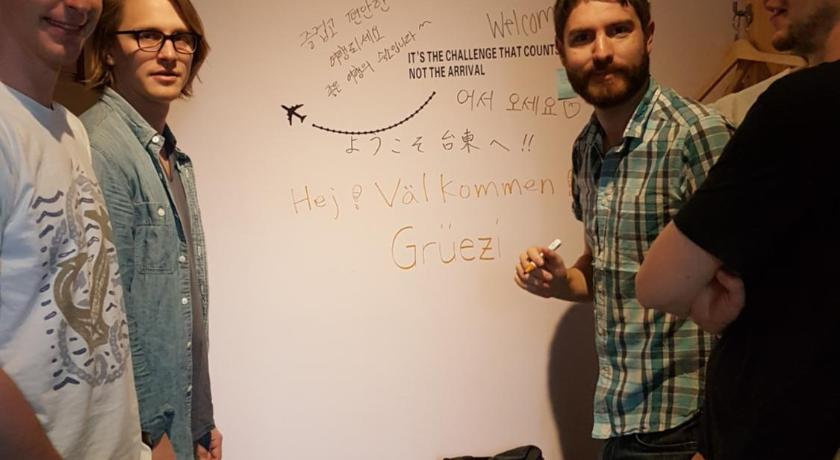 즐겁고 편안한
여행되세요
좋은 여행의 날입니다~
Welcom
IT'S THE CHALLENGE THAT COUNTS
NOT THE ARRIVAL
어서 오세요
ようこそ 台東へ!!
Hej! Välkommen!
Grüezi